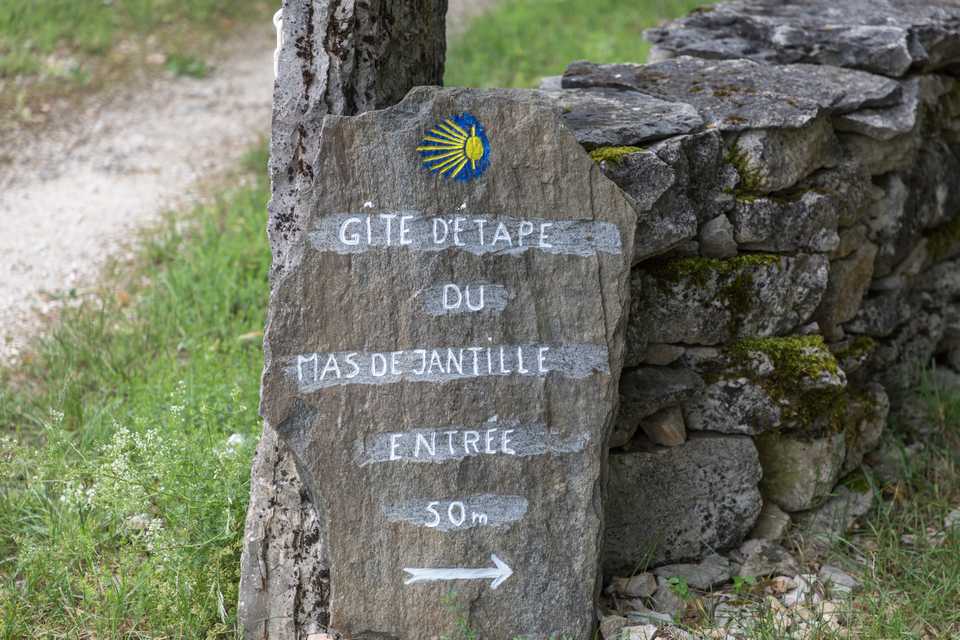 GÎTE D'ÉTAPE
DU
MAS DE JANTILLE
ENTRÉE
50m